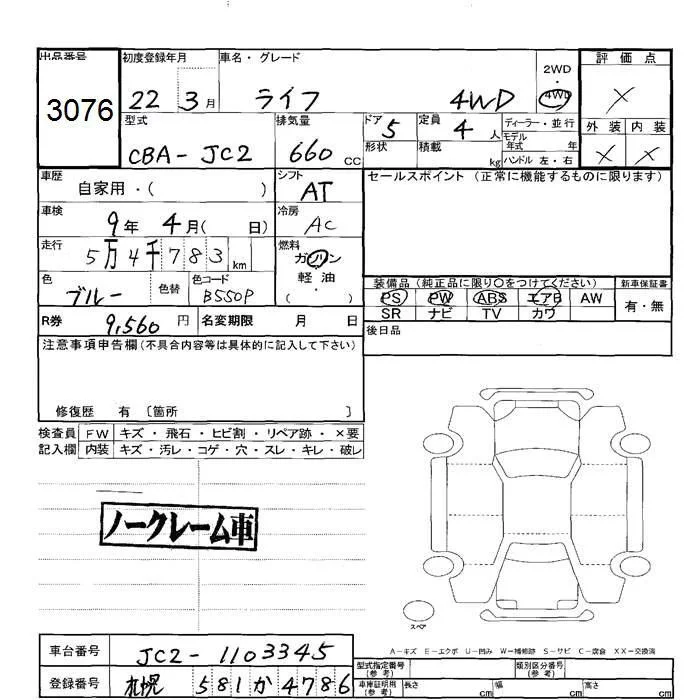 出品番号 初度登録年月 車名・グレード 2WD 評価点
3076 22 3月 ライフ 4WD ・ 4WD ×
型式 排気量 ドア 5 定員 4人 ディーラー・並行 外装 内装
CBA-JC2 660 CC 形状 積載 kg モデル年式 年 × ×
ハンドル 左・右
車歴 自家用・( ) シフト AT セールスポイント (正常に機能するものに限ります)
車検 9年 4月( 日) 冷房 AC
走行 5万4千783 km 燃料 ガソリン・軽油・( )
色 ブルー 色替 色コード B550P 装備品 (純正品に限り○をつけてください) 新車保証書
PS PW ABS エアB AW 有・無
SR ナビ TV カワ
R券 9,560 円 名変期限 月 日 後日品
注意事項申告欄(不具合内容等は具体的に記入して下さい)
修復歴 有 〔箇所 〕
検査員 FW キズ・飛石・ヒビ割・リペア跡・×要
記入欄 内装 キズ・汚レ・コゲ・穴・スレ・キレ・破レ
ノークレーム車
スペア
A-キズ E-エクボ U-凹み W-補修跡 S-サビ C-腐食 XX-交換済
車台番号 JC2-1103345 型式指定番号(参考) 類別区分番号(参考)
登録番号 札幌 581 か 4786 車庫証明用(参考) 長さ cm 幅 cm 高さ cm